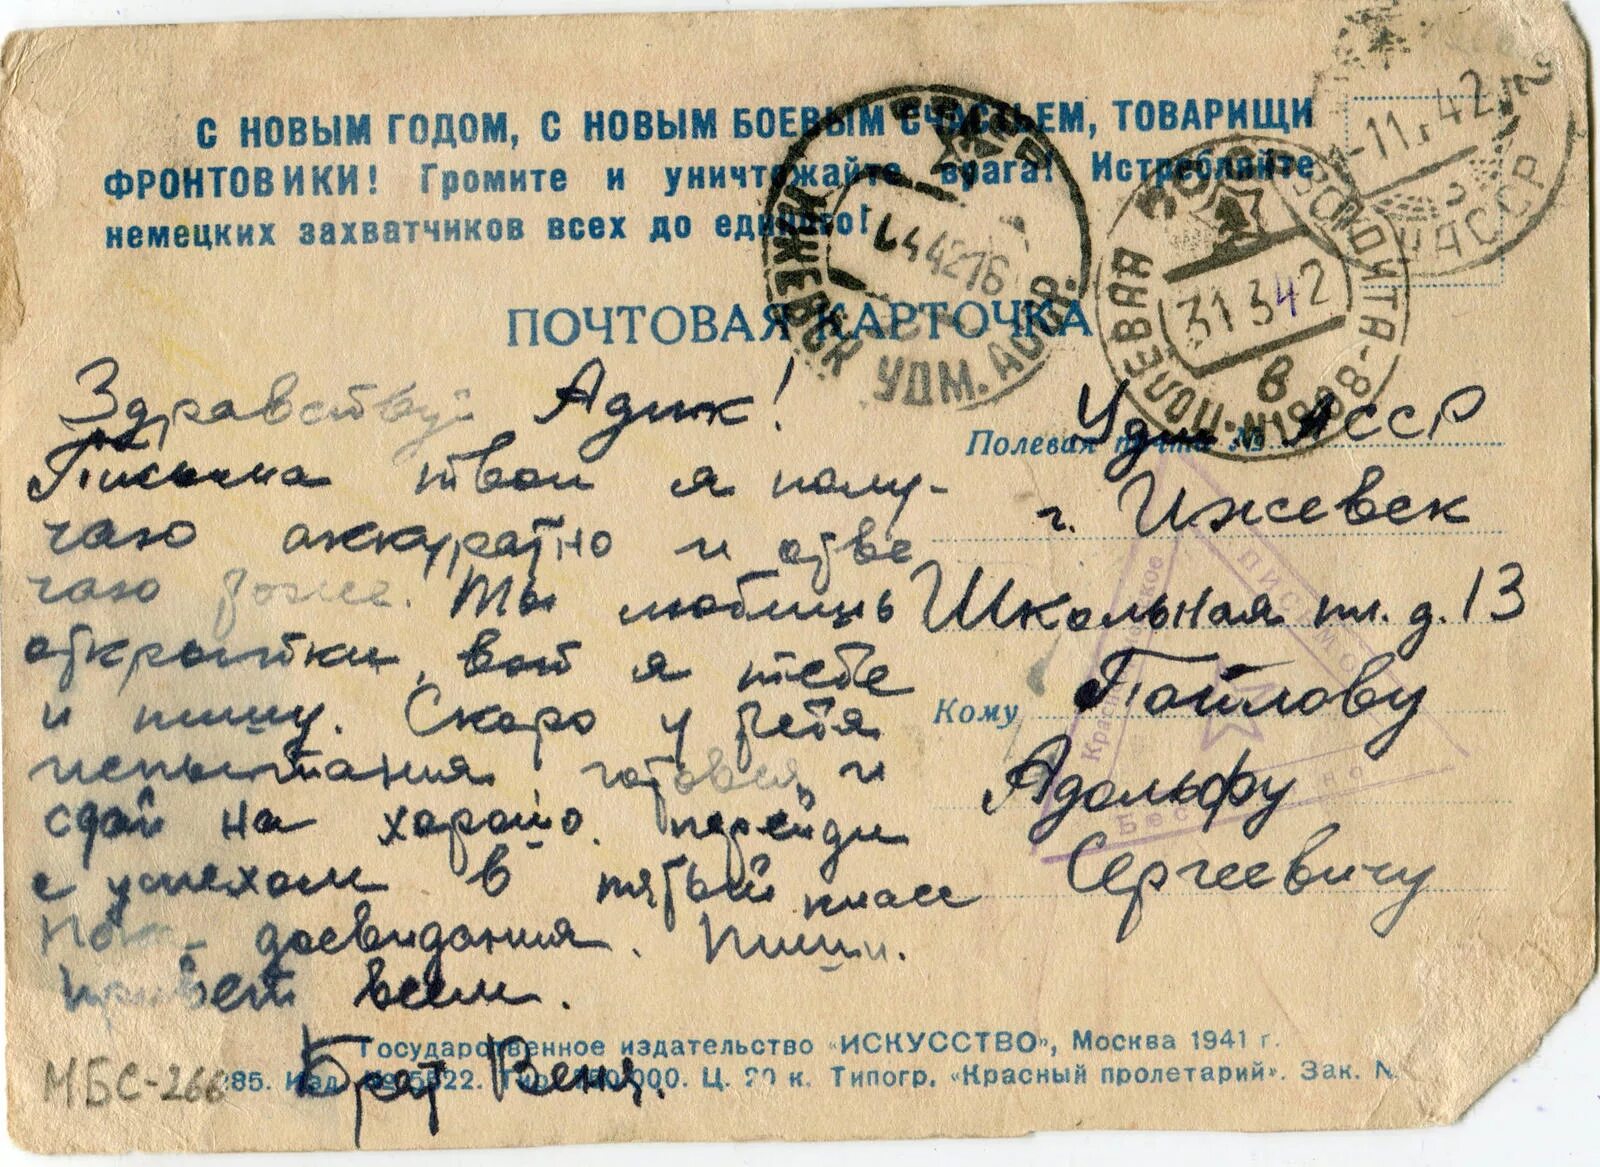 С НОВЫМ ГОДОМ, С НОВЫМ БОЕВЫМ СЧАСТЬЕМ, ТОВАРИЩИ
ФРОНТОВИКИ! Громите и уничтожайте врага! Истребляйте
немецких захватчиков всех до единого!
ПОЧТОВАЯ КАРТОЧКА
СССР
ИЖЕВСК УДМ. АССР.
444216
СССР
ПОЛЕВАЯ
31 3 42
в
-11. 42
АССР
Здравствуй Адик!
Письма твои я полу-
чаю аккуратно и отве
чаю тоже. Ты любишь
открытки, вот я тебе
и пишу. Скоро у тебя
испытания готовься и
сдай на хорошо. перейди
с успехом в пятый класс
Пока досвидания. Пиши.
привет всем.
Брат Веня.
Полевая почта №
Удм АССР
г. Ижевск
Школьная пл. д. 13
Кому
Пойлову
Адольфу
Сергеевичу
Красноармейское
ПИСЬМО
Бесплатно
Государственное издательство «ИСКУССТВО», Москва 1941 г.
МБС-266
85. Изд. 5822. Тир. 000. Ц. 20 к. Типогр. «Красный пролетарий». Зак. N